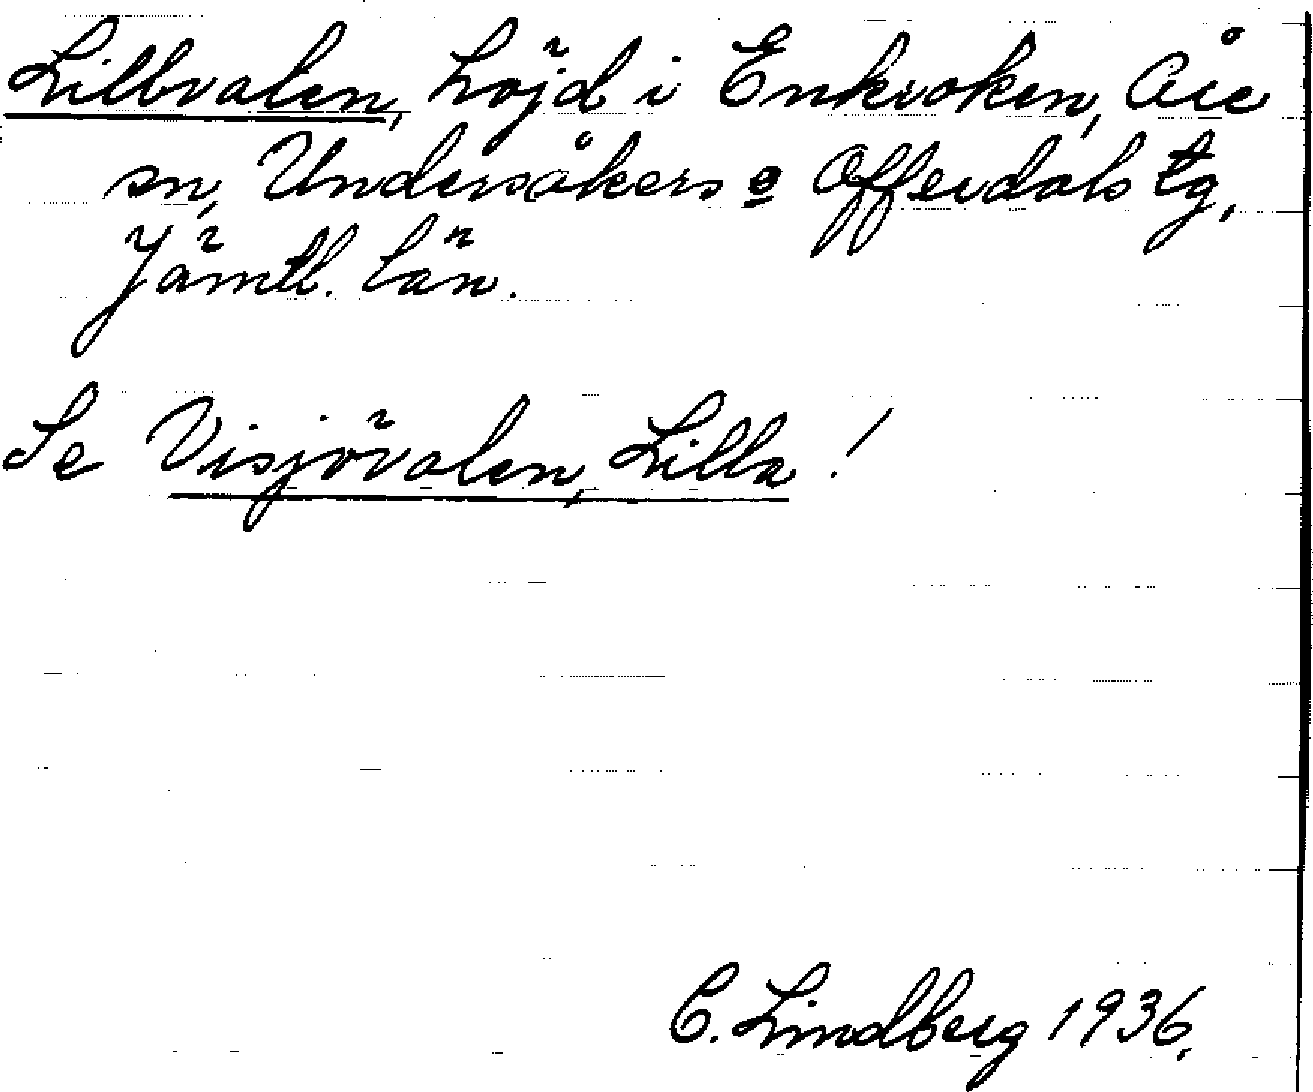 Lillvalen, höjd i Enkroken, Åre
sn, Undersåkers o Offerdals tg,
Jämtl. län.
Se Visjövalen, Lilla!
C. Lindberg 1936.